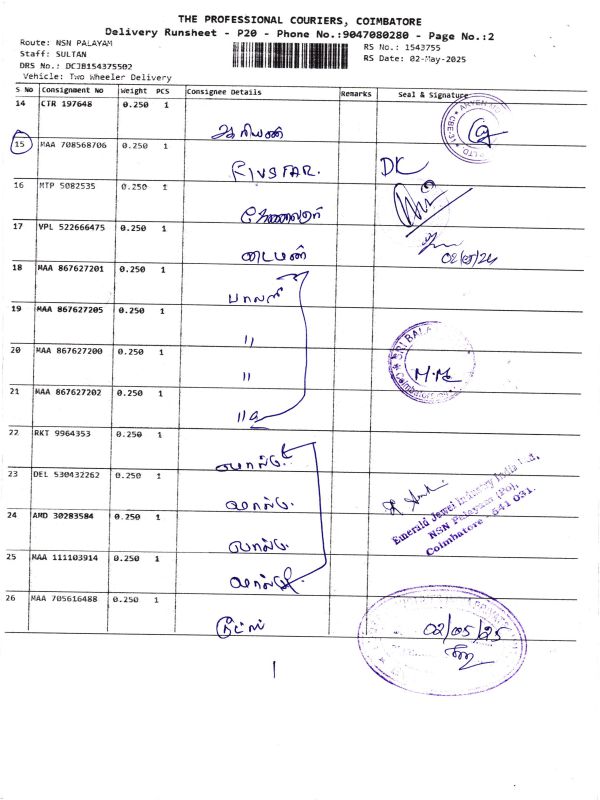 THE PROFESSIONAL COURIERS, COIMBATORE
Delivery Runsheet - P20 - Phone No.:9047080280 - Page No.:2
Route: NSN PALAYAM
RS No.: 1543755
Staff: SULTAN
RS Date: 02-May-2025
DRS No.: DCJB154375502
Vehicle: Two Wheeler Delivery
S No Consignment No Weight PCS Consignee Details Remarks Seal & Signature
14 CTR 197648 0.250 1
15 MAA 708568706 0.250 1 FIVSTAR. DK
16 MTP 5082535 0.250 1
17 VPL 522666475 0.250 1 டைமண்
18 MAA 867627201 0.250 1 பாலாஜி
19 MAA 867627205 0.250 1 "
20 MAA 867627200 0.250 1 " SRI BALA M.M
21 MAA 867627202 0.250 1 "
22 RKT 9964353 0.250 1
23 DEL 530432262 0.250 1
Emerald Jewel Industry India Ltd.,
NSN Palayam (Po),
Coimbatore - 641 031.
24 AMD 30283584 0.250 1
25 MAA 111103914 0.250 1
26 MAA 705616488 0.250 1 02/05/25